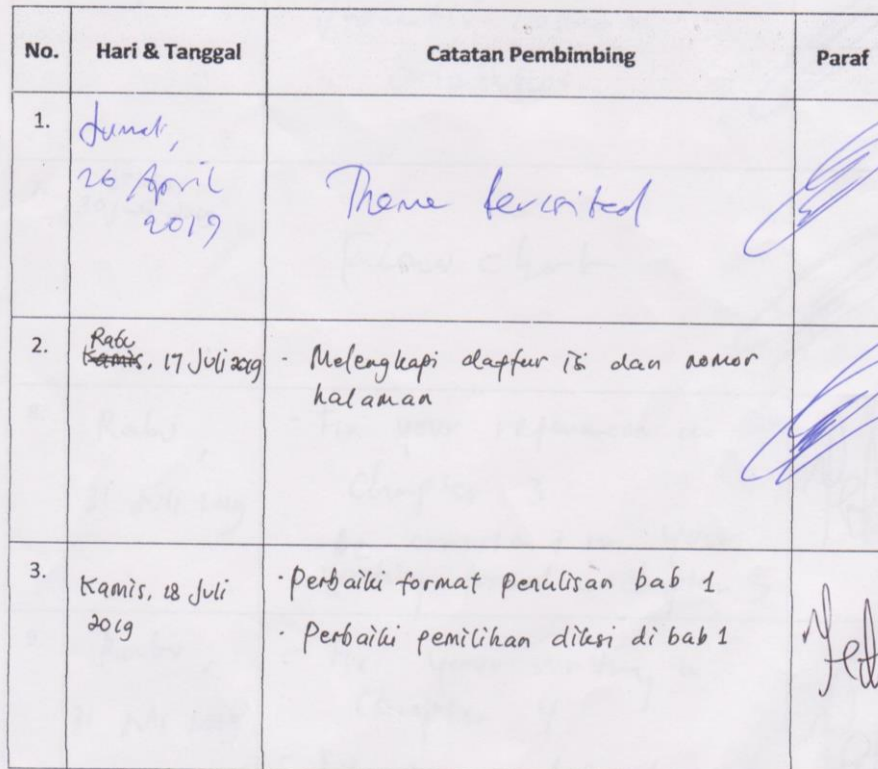 No. Hari & Tanggal Catatan Pembimbing Paraf
1. Jumat,
26 April
2019
Theme
2. Rabu
Kamis, 17 Juli 2019 - Melengkapi daftar isi dan nomor
halaman
3. Kamis, 18 Juli
2019
· Perbaiki format penulisan bab 1
· Perbaiki pemilihan diksi di bab 1